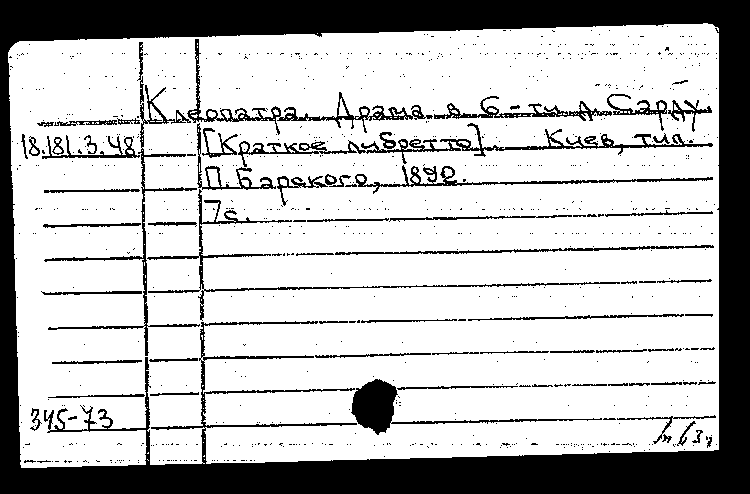 Клеопатра. Драма в 6-ти д. Сарду.
18.181.3.48 [Краткое либретто]. Киев, тип.
П. Барского, 1890.
7с.
345-73